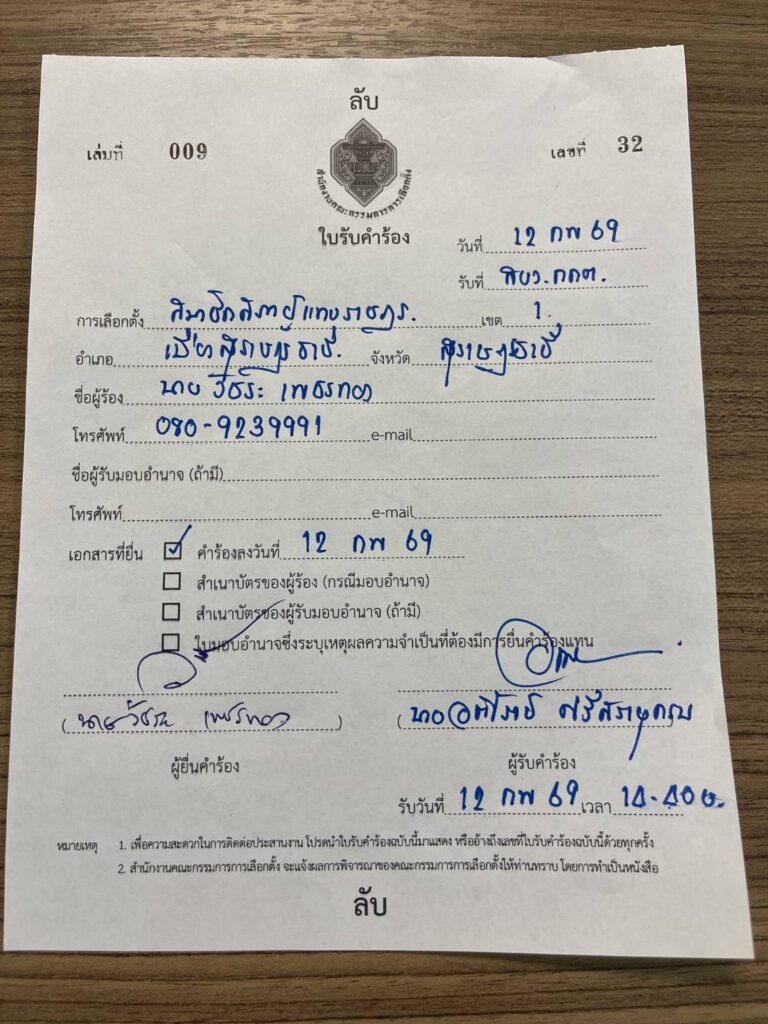 ลับ
เล่มที่ 009
เลขที่ 32
สำนักงานคณะกรรมการการเลือกตั้ง
ใบรับคำร้อง
วันที่ 12 กพ 69
รับที่ สบว.กกต.
การเลือกตั้ง สมาชิกสภาผู้แทนราษฎร. เขต 1.
อำเภอ เมืองสุราษฎร์ธานี. จังหวัด สุราษฎร์ธานี
ชื่อผู้ร้อง นาย วัชระ เพชรทอง
โทรศัพท์ 080-9239991 e-mail
ชื่อผู้รับมอบอำนาจ (ถ้ามี)
โทรศัพท์ e-mail
เอกสารที่ยื่น คำร้องลงวันที่ 12 กพ 69
สำเนาบัตรของผู้ร้อง (กรณีมอบอำนาจ)
สำเนาบัตรของผู้รับมอบอำนาจ (ถ้ามี)
ใบมอบอำนาจซึ่งระบุเหตุผลความจำเป็นที่ต้องมีการยื่นคำร้องแทน
(นายวัชระ เพชรทอง) (นาย
ผู้ยื่นคำร้อง ผู้รับคำร้อง
รับวันที่ 12 กพ 69 เวลา
หมายเหตุ 1. เพื่อความสะดวกในการติดต่อประสานงาน โปรดนำใบรับคำร้องฉบับนี้มาแสดง หรืออ้างถึงเลขที่ใบรับคำร้องฉบับนี้ด้วยทุกครั้ง
2. สำนักงานคณะกรรมการการเลือกตั้ง จะแจ้งผลการพิจารณาของคณะกรรมการการเลือกตั้งให้ท่านทราบ โดยการทำเป็นหนังสือ
ลับ